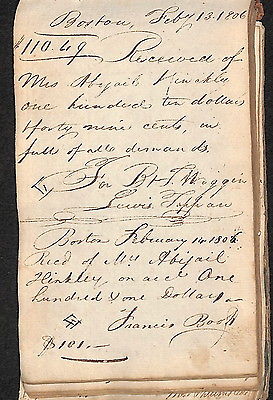 Boston, Feby 13. 1806
$110.49
Received of
Mrs Abijail Hinckley
one hundred ten dollars
& forty nine cents, in
full of all demands.
For B & T. Wiggin
Lewis Tappan
Boston February 14 1806
Recd of Mrs Abigail
Hinkley on acct One
hundred & one Dollars
Francis
$101.—